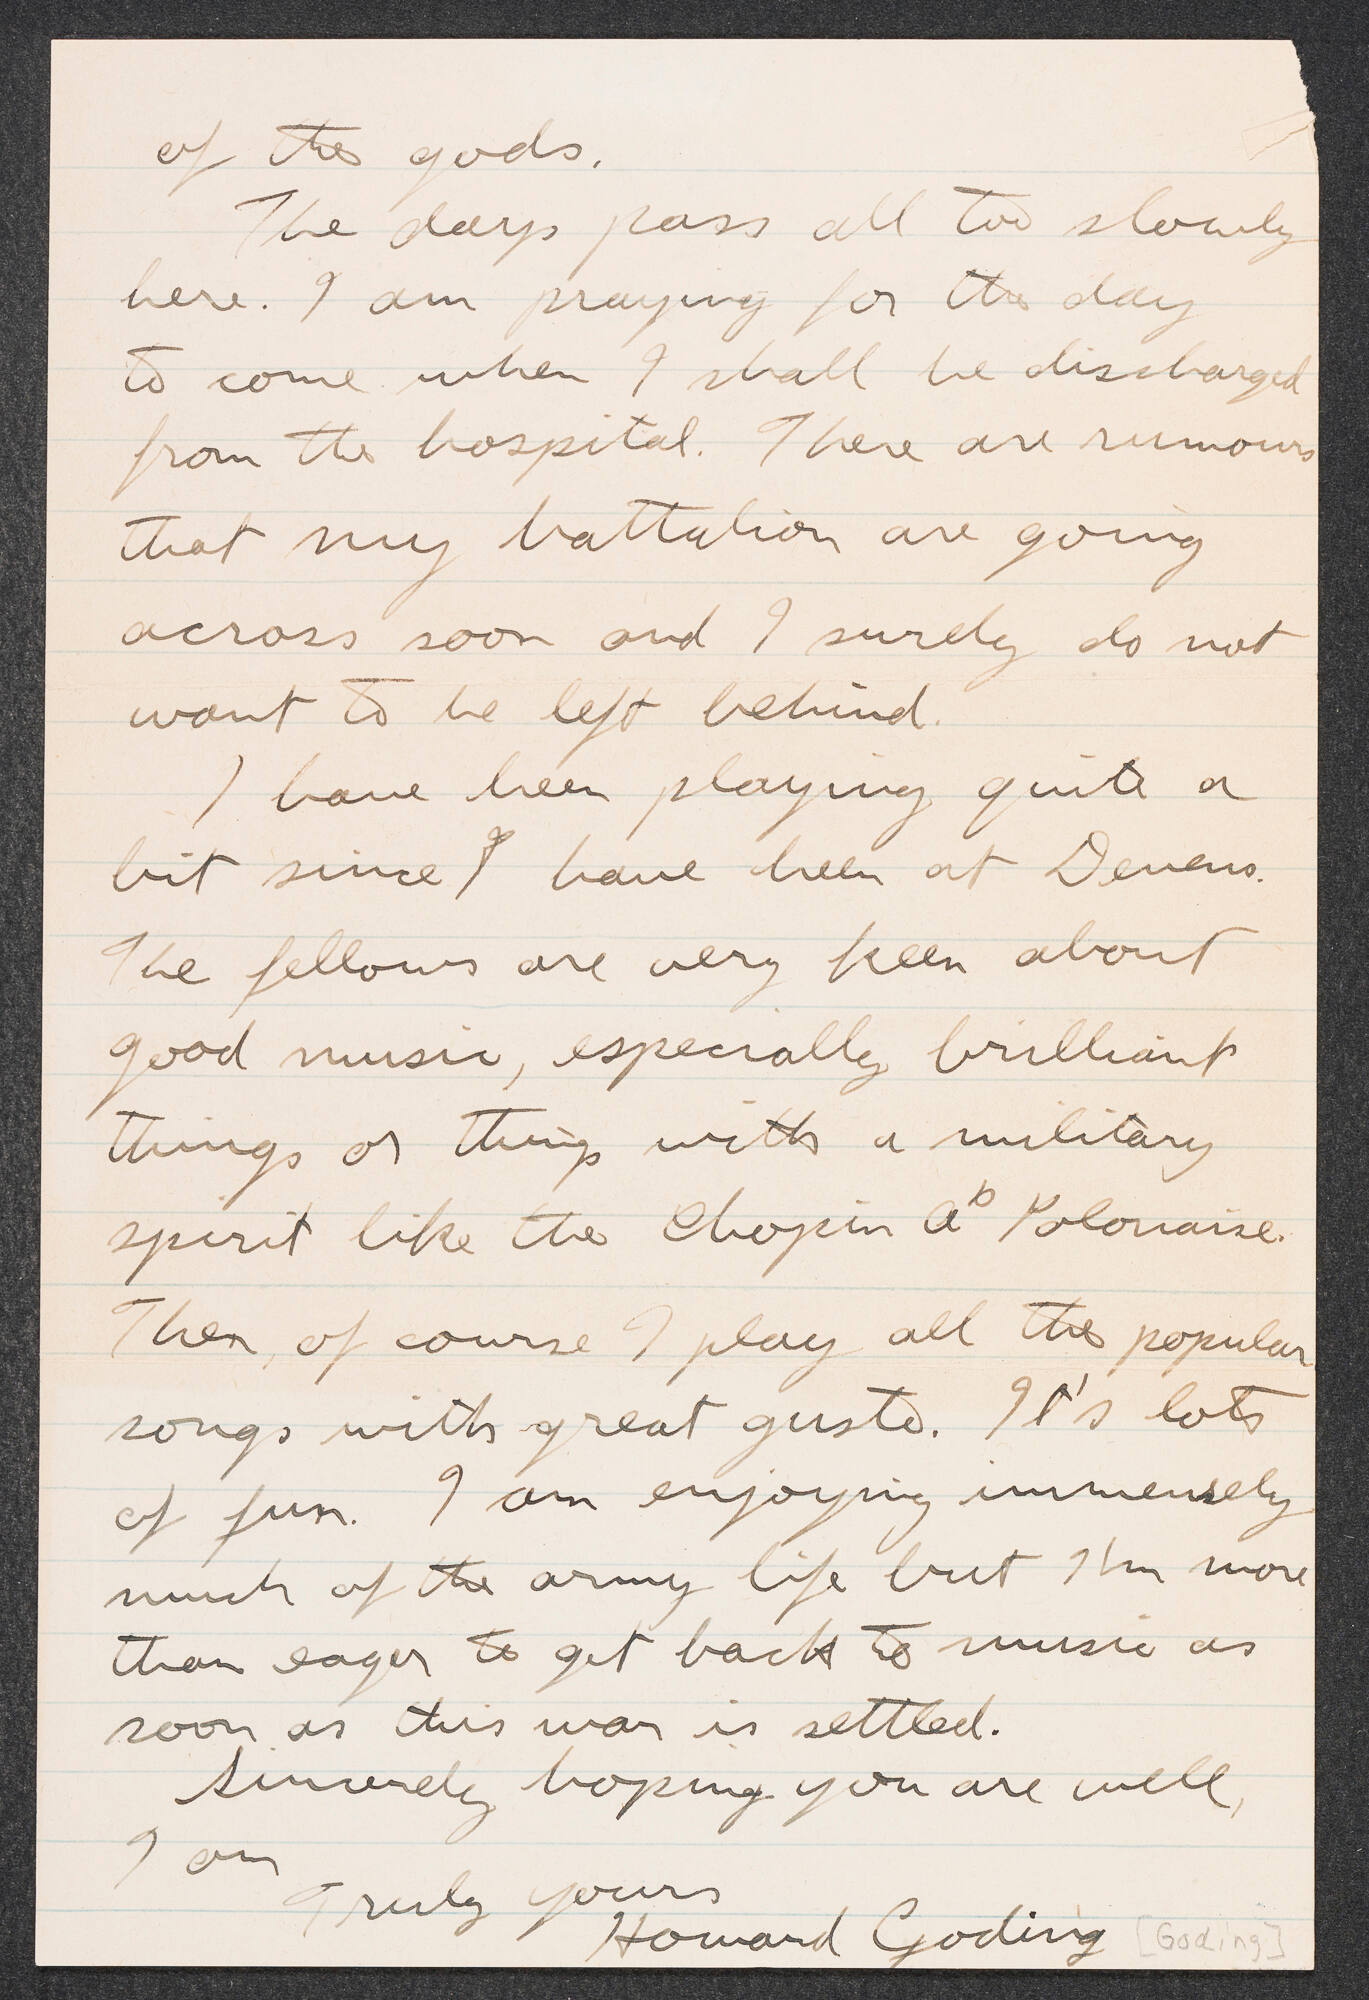 of the gods.
The days pass all too slowly
here. I am praying for the day
to come when I shall be discharged
from the hospital. There are rumours
that my battalion are going
across soon and I surely do not
want to be left behind.
I have been playing quite a
bit since I have been at Devens.
The fellows are very keen about
good music, especially brilliant
things or things with a military
spirit like the Chopin A♭ Polonaise.
Then, of course I play all the popular
songs with great gusto. It's lots
of fun. I am enjoying immensely
much of the army life but I'm more
than eager to get back to music as
soon as this war is settled.
Sincerely hoping you are well,
I am
Truly yours
Howard Goding [Goding]